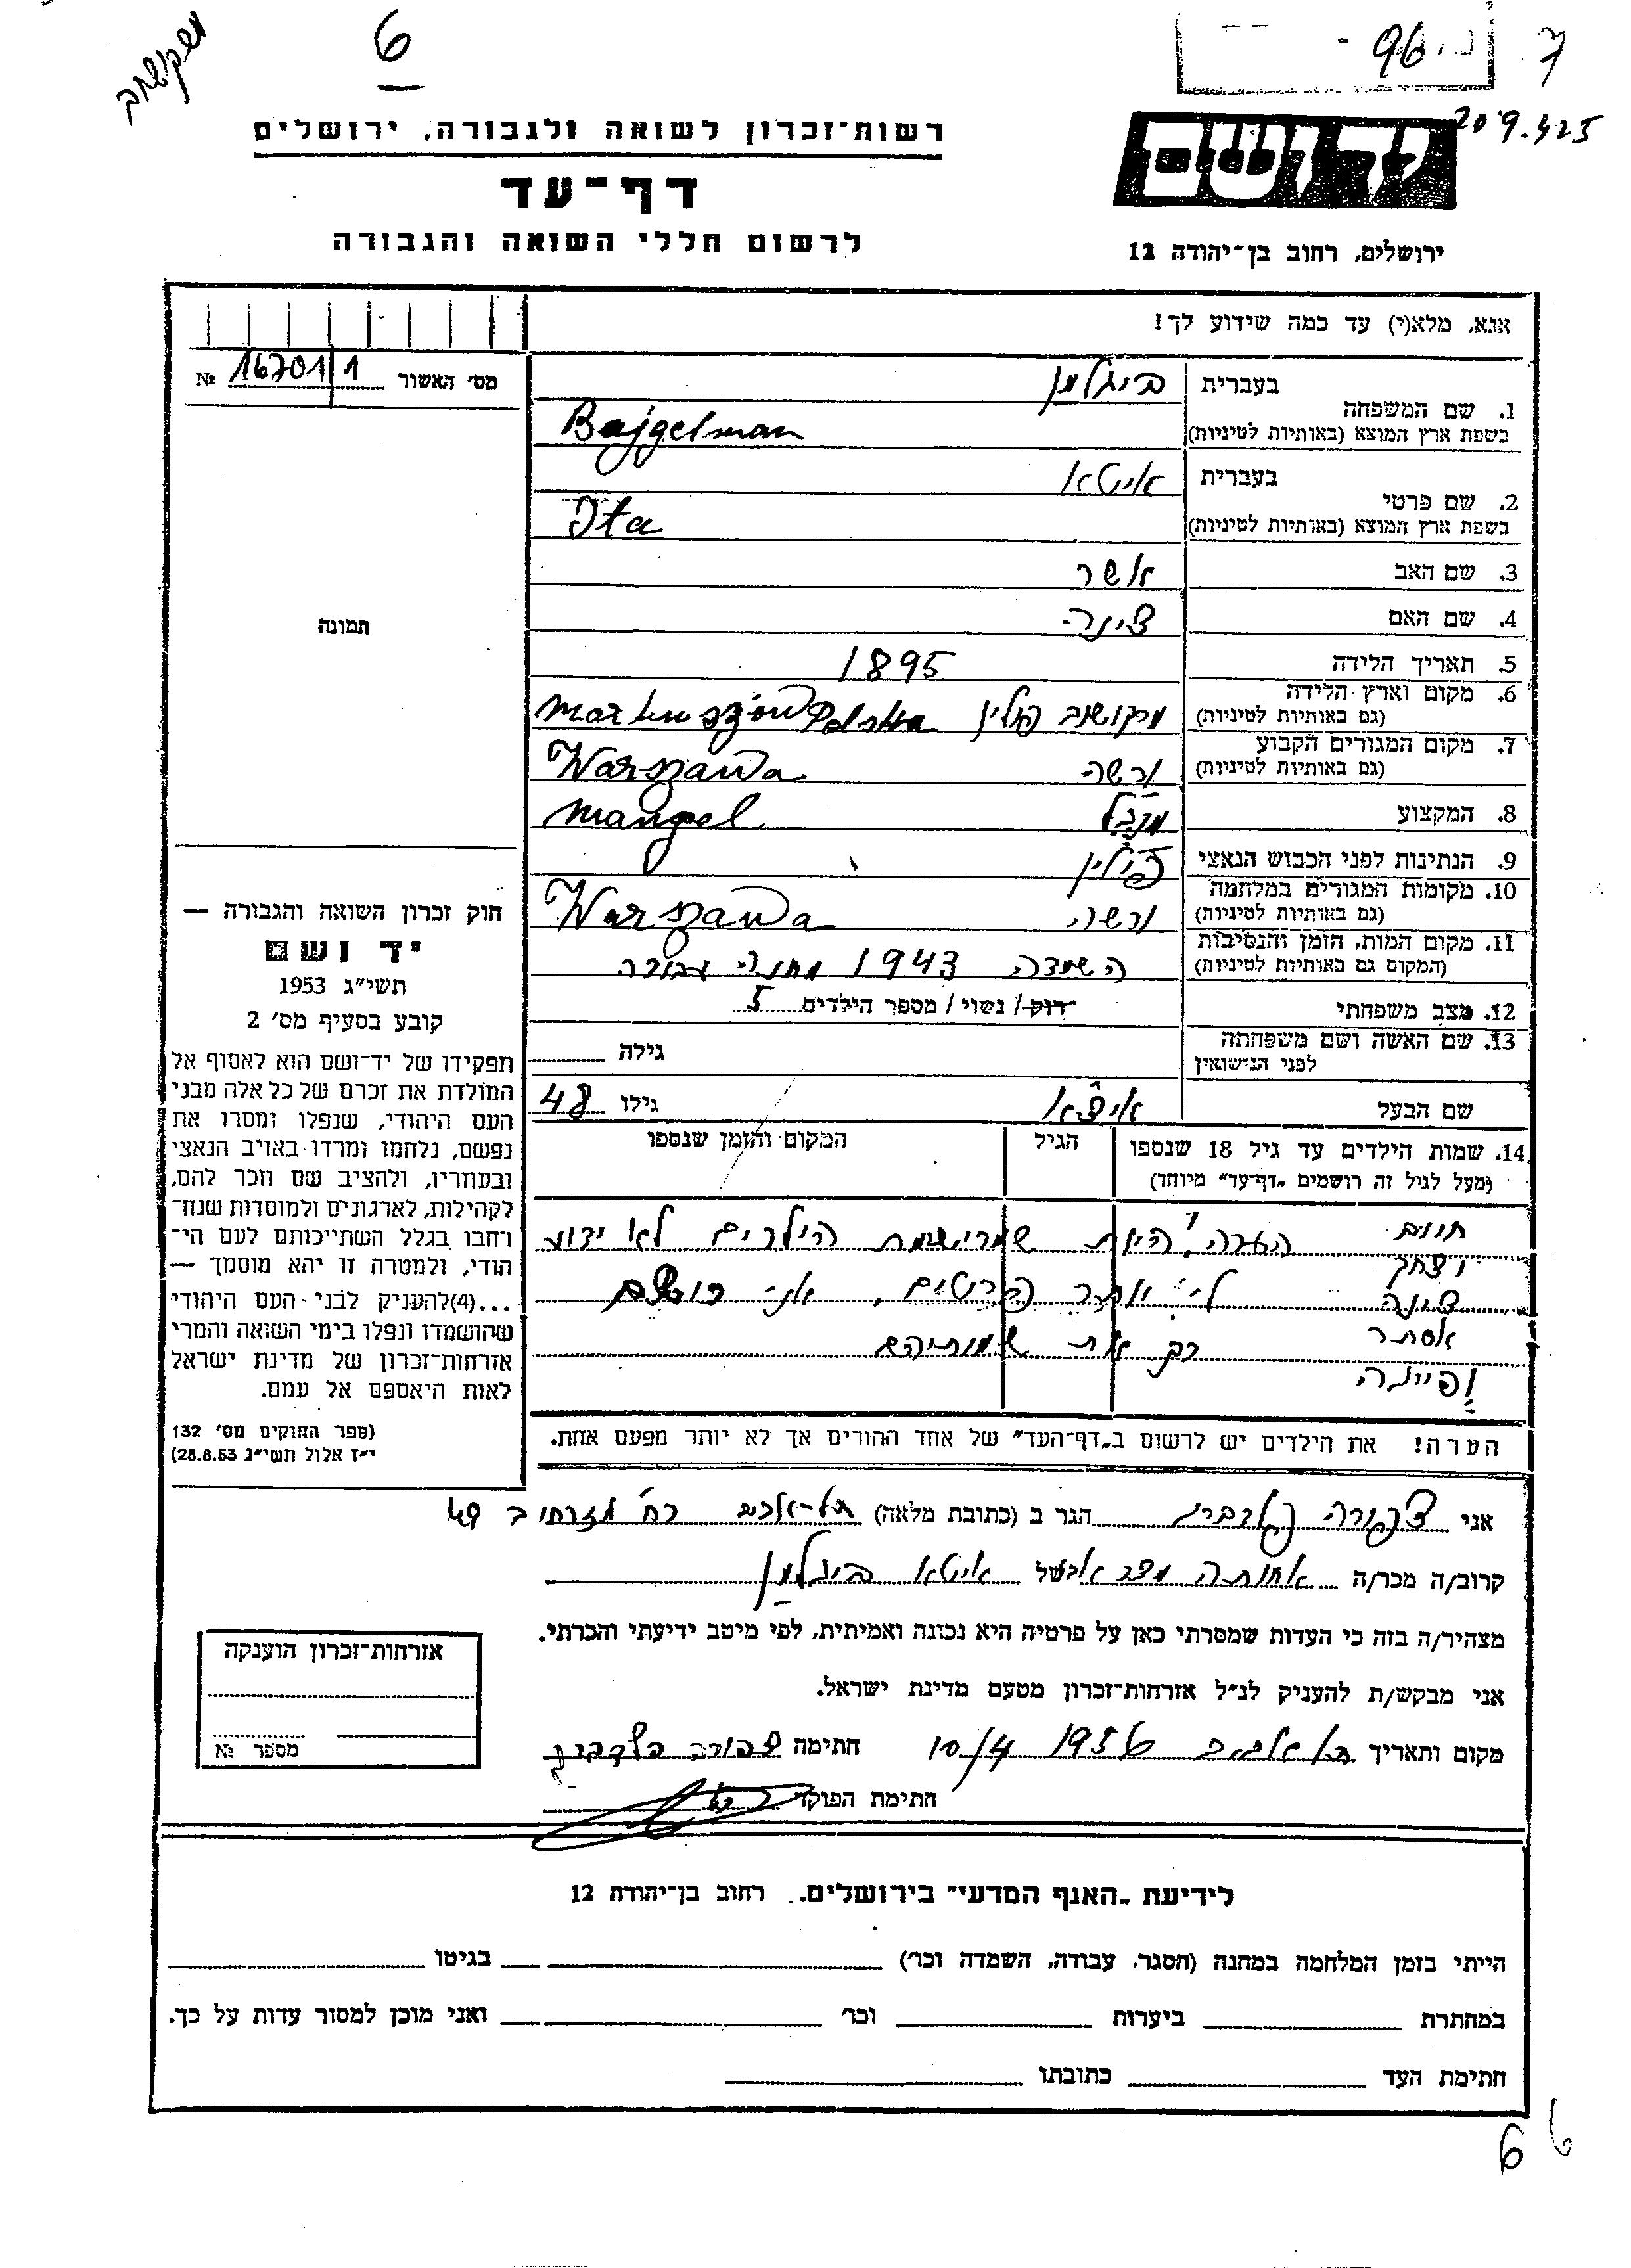 מרקושוב
6
96
7
209.425
רשות-זכרון לשואה ולגבורה, ירושלים
דף-עד
לרשום חללי השואה והגבורה
ידושם
ירושלים, רחוב בן-יהודה 12
אנא, מלא(י) עד כמה שידוע לך!
מס' האשור 16701/1 №
1. שם המשפחה
בעברית ביגלמן
בשפת ארץ המוצא (באותיות לטיניות) Bajgelman
2. שם פרטי
בעברית איטא
בשפת ארץ המוצא (באותיות לטיניות) Ita
3. שם האב אשר
4. שם האם צינה
5. תאריך הלידה 1895
6. מקום וארץ הלידה
(גם באותיות לטיניות) מרקושוב פולין Markuszów Polska
7. מקום המגורים הקבוע
(גם באותיות לטיניות) ורשה Warszawa
8. המקצוע
9. הנתינות לפני הכבוש הנאצי פולין
10. מקומות המגורים במלחמה
(גם באותיות לטיניות) ורשה Warszawa
11. מקום המות, הזמן והנסיבות
(המקום גם באותיות לטיניות) השמדה 1943 מחנה עבודה
12. מצב משפחתי רוק / נשוי / מספר הילדים 5
13. שם האשה ושם משפחתה
לפני הנישואין
גילה
שם הבעל גילו 48
14. שמות הילדים עד גיל 18 שנספו
(מעל לגיל זה רושמים "דף-עד" מיוחד)
הגיל
המקום והזמן שנספו
חיים הערה! היות שמרשימת הילדים לא ידוע
יצחק
צינה לי יותר פרטים, אני רושם
אסתר רק את שמותיהם
ופייגה
הערה! את הילדים יש לרשום ב"דף-העד" של אחד ההורים אך לא יותר מפעם אחת.
תמונה
חוק זכרון השואה והגבורה —
יד ושם
תשי"ג 1953
קובע בסעיף מס' 2
תפקידו של יד-ושם הוא לאסוף אל
המולדת את זכרם של כל אלה מבני
העם היהודי, שנפלו ומסרו את
נפשם, נלחמו ומרדו באויב הנאצי
ובעוזריו, ולהציב שם וזכר להם,
לקהילות, לארגונים ולמוסדות שנח־
רחבו בגלל השתייכותם לעם הי־
הודי, ולמטרה זו יהא מוסמך —
...(4) להעניק לבני העם היהודי
שהושמדו ונפלו בימי השואה והמרי
אזרחות-זכרון של מדינת ישראל
לאות היאספם אל עמם.
(ספר החוקים מס' 132
י"ז אלול תשי"ג 28.8.53)
אני צפורה גולדברג הגר ב (כתובת מלאה) תל-אביב רח'
קרוב/ה מכר/ה אחותה מצד אב של איטא ביגלמן
מצהיר/ה בזה כי העדות שמסרתי כאן על פרטיה היא נכונה ואמיתית, לפי מיטב ידיעתי והכרתי.
אני מבקש/ת להעניק לנ"ל אזרחות-זכרון מטעם מדינת ישראל.
מקום ותאריך תל אביב 1956 10/4 חתימה צפורה גולדברג
חתימת הפוקד
אזרחות-זכרון הוענקה
מספר №
לידיעת "האנף המדעי" בירושלים. רחוב בן-יהודה 12
הייתי בזמן המלחמה במחנה (הסגר, עבודה, השמדה וכו') בגיטו
במחתרת ביערות וכו' ואני מוכן למסור עדות על כך.
חתימת העד כתובתו
6